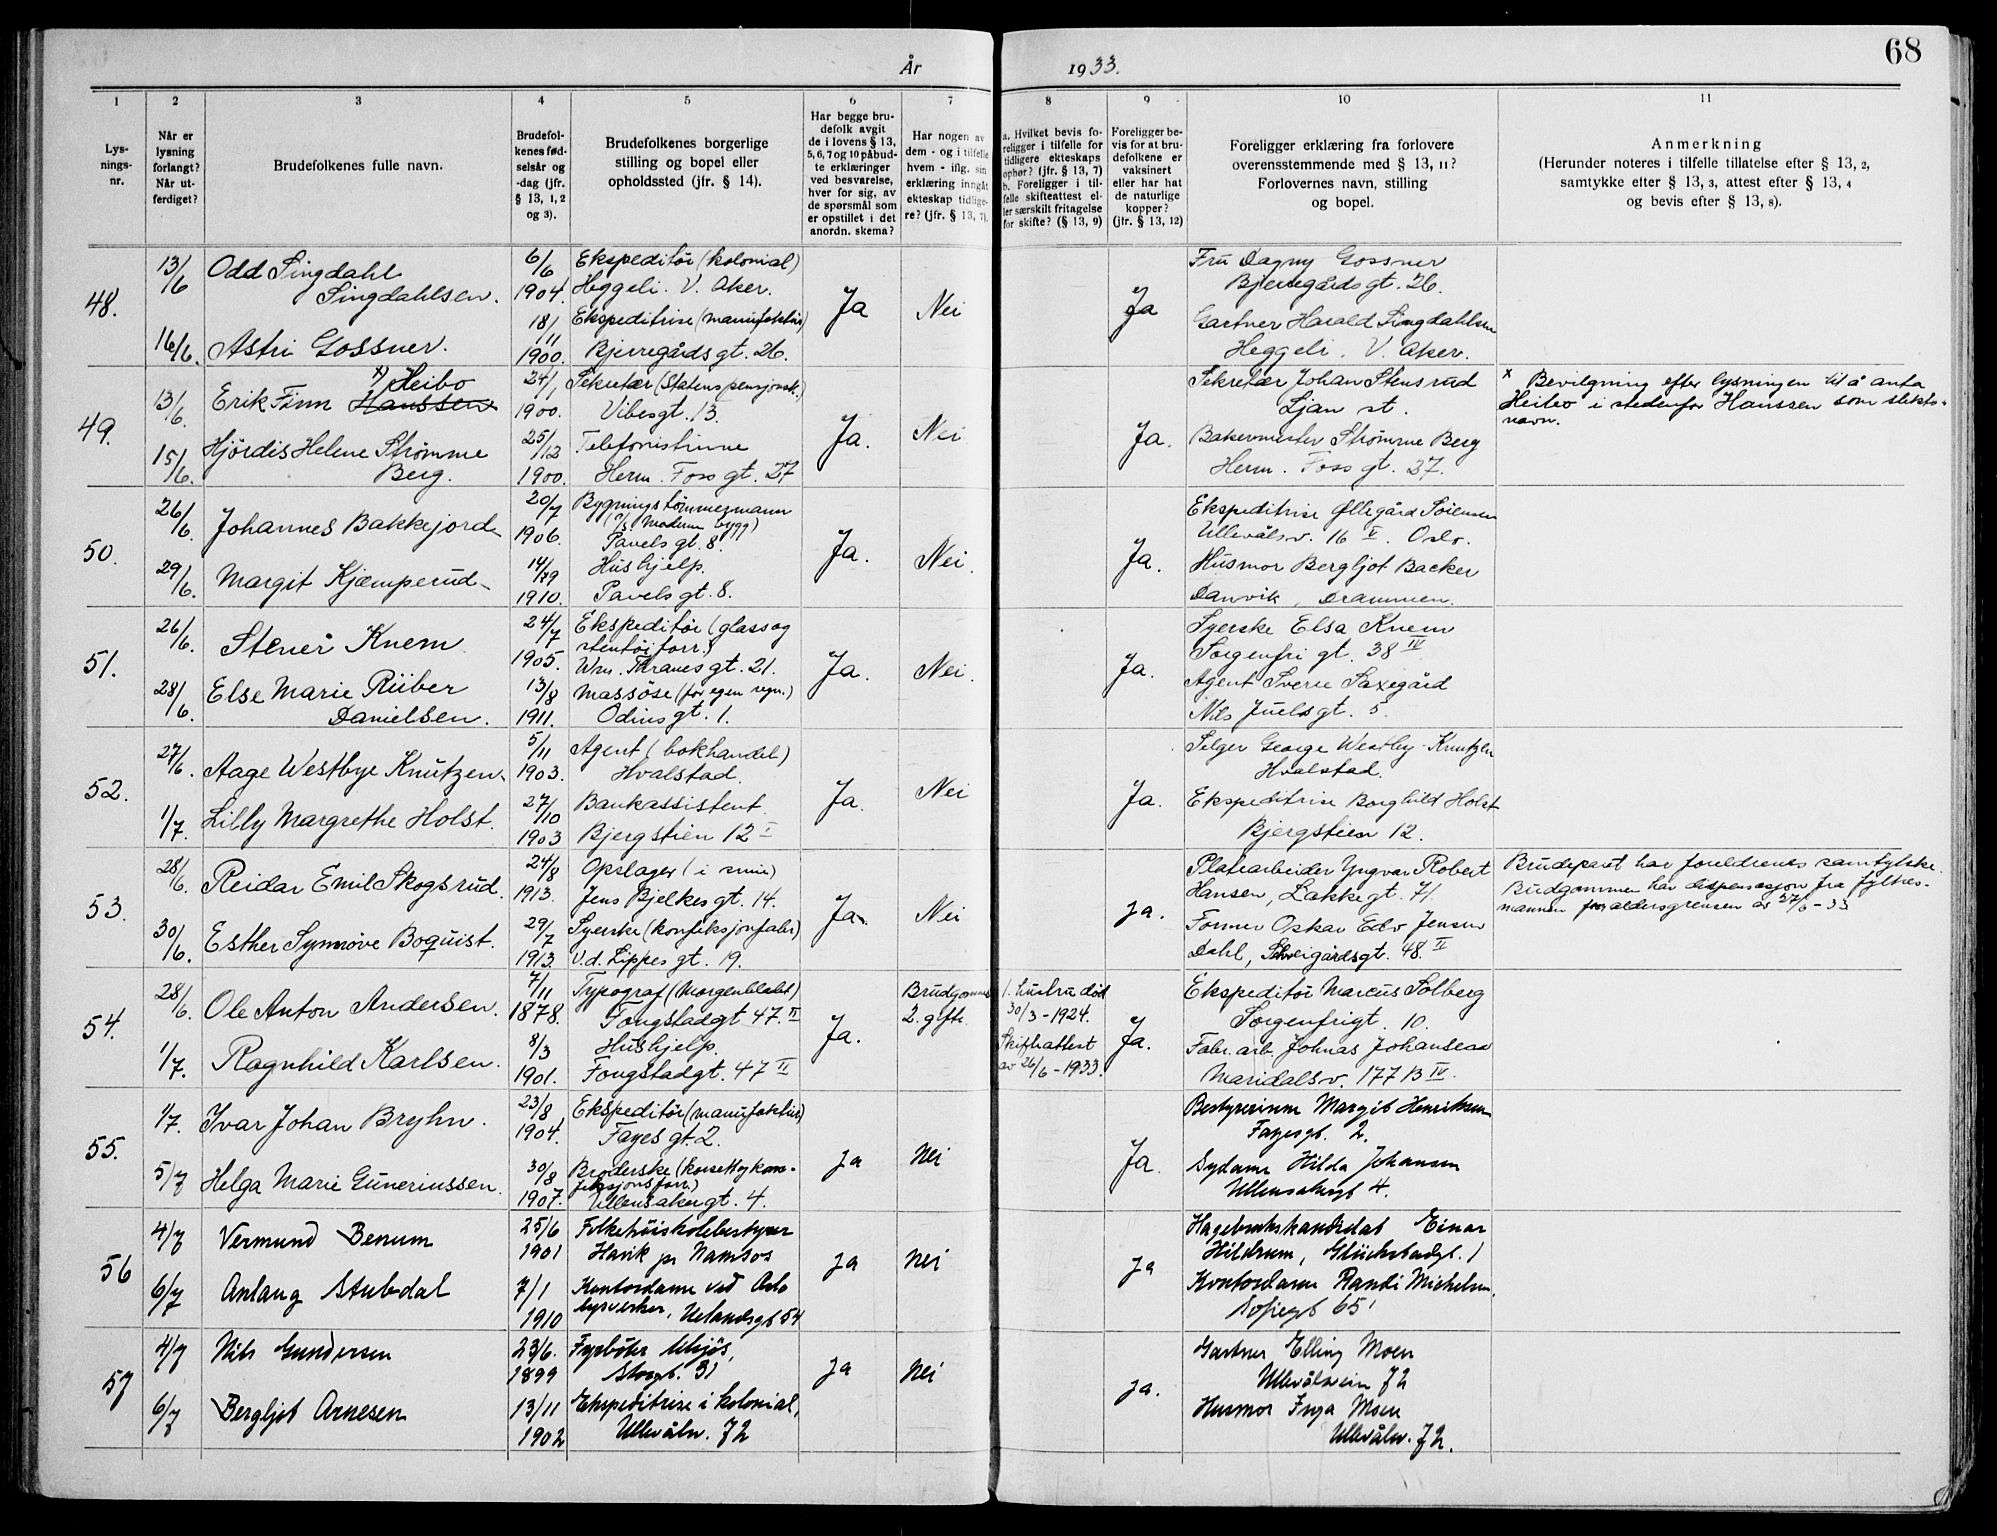 68
År 1933.
1 2 3 4 5 6 7 8 9 10 11
Lys-
nings-
nr.
Når er
lysning
forlangt?
Når ut-
ferdiget?
Brudefolkenes fulle navn.
Brudefol-
kenes fød-
selsår og
-dag (jfr.
§ 13, 1, 2
og 3).
Brudefolkenes borgerlige
stilling og bopel eller
opholdssted (jfr. § 14).
Har begge bru-
defolk avgit
de i lovens § 13,
5, 6, 7 og 10 påbud-
te erklæringer
ved besvarelse,
hver for sig, av
de spørsmål som
er opstillet i det
anordn. skema?
Har nogen av
dem - og i tilfelle
hvem - iflg. sin
erklæring inngått
ekteskap tidlige-
re? (jfr. § 13, 7).
a. Hvilket bevis fo-
religger i tilfelle for
tidligere ekteskaps
ophør? (jfr. § 13, 7)
b. Foreligger i til-
felle skifteattest el-
ler særskilt fritagelse
for skifte? (§ 13, 9)
Foreligger be-
vis for at bru-
defolkene er
vaksinert
eller har hat
de naturlige
kopper?
(jfr. § 13, 12)
Foreligger erklæring fra forlovere
overensstemmende med § 13, 11?
Forlovernes navn, stilling
og bopel.
Anmerkning
(Herunder noteres i tilfelle tillatelse efter § 13, 2,
samtykke efter § 13, 3, attest efter § 13, 4
og bevis efter § 13, 8).
48.
13/6
16/6.
Odd Singdahl
Singdahlsen.
Astri Gossner.
6/6
1904.
18/11
1900.
Ekspeditør (kolonial)
Heggeli. V. Aker.
Ekspeditrise (manufaktur)
Bjerregårds gt. 26.
Ja
Nei
Ja
Fru Dagny Gossner
Bjerregårds gt. 26.
Gartner Harald Singdahlsen
Heggeli. V. Aker.
49.
13/6.
15/6.
x) Heibo
Erik Finn Hanssen
Hjördis Helene Strømme
Berg.
24/1
1900.
25/12
1900.
Sekretær (Statens pensjonsk.)
Vibesgt. 13.
Telefonistinne
Herm. Foss gt. 27
Ja.
Nei
Ja.
Sekretær Johan Stensrud
Ljan st.
Bakermester Strømme Berg
Herm. Foss gt. 27.
x Bevilgning efter lysningen til å anta
Heibo i stedenfor Hanssen som slekts-
navn.
50.
26/6.
29/6.
Johannes Bakkejord
Margit Kjæmperud
20/7
1906.
14/
1910.
Bygningstømmermann
(A/S Modum bygg)
Pavels gt. 8.
Hushjelp.
Pavels gt. 8.
Ja.
Nei.
Ja.
Ekspeditrise Øllegård Sørensen
Ullevålsv. 16 V. Oslo.
Husmor Bergljot Backer
Danvik, Drammen.
51.
26/6.
28/6.
Stener Knem
Else Marie Riiber
Danielsen.
24/7
1905.
13/8
1911.
Ekspeditør (glass og
stentøiforr.)
Wm. Thranes gt. 21.
Massøse (for egen regn.)
Odins gt. 1.
Ja.
Nei.
Ja.
Syerske Elsa Knem
Sorgenfri gt. 38 IV
Agent Sverre Saxegård
Nils Juels gt. 5.
52.
27/6.
1/7.
Aage Westbye Knutzen.
Lilly Margrethe Holst.
5/11
1903.
27/10
1903
Agent (bokhandel)
Hvalstad.
Bankassistent.
Bjergstien 12 I
Ja.
Nei
Ja.
Selger George Westby-Knutzen
Hvalstad.
Ekspeditrise Borghild Holst
Bjergstien 12.
53.
28/6.
30/6.
Reidar Emil Skogsrud.
Esther Synnøve Boquist.
24/8
1913.
29/7
1913.
Opslager (i smie)
Jens Bjelkes gt. 14.
Syerske (konfeksjonfabr)
V.d. Lippes gt. 19.
Ja.
Nei
Ja.
Platearbeider Yngvar Robert
Hansen, Lakkegt. 71
Former Oskar Edv Jensen
Dahl, Schweigårdsgt. 48 II
Brudeparet har foreldrenes samtykke.
Brudgommen har dispensasjon fra fylkes-
mannen for aldersgrensen av 27/6-33
54.
28/6.
1/7.
Ole Anton Andersen.
Ragnhild Karlsen.
7/11
1878.
8/3
1901.
Typograf (Morgenbladet)
Fougstadgt 47. II
Hushjelp.
Fougstadgt. 47 II
Ja.
Brudgommens
2. gifte.
1. hustru død
30/3-1924.
Skifteattest
av 26/6-1933.
Ja.
Ekspeditør Marcus Solberg
Sorgenfrigt. 10.
Fabr. arb. Johnas Johansen
Maridalsv. 177 B IV.
55.
1/7.
5/7
Ivar Johan Bryhn.
Helga Marie Guneriussen.
23/8
1904.
30/8
1907.
Ekspeditør (manufaktur)
Fayes gt. 2.
Broderske (korsett og kon-
feksjonsforr.)
Ullensakergt. 4.
Ja
Nei
Ja.
Bestyrerinne Margit Henriksen
Fayesgt. 2.
Sydame Hilda Johansen
Ullensakergt 4.
56
4/7
6/7
Vermund Benum
Anlaug Stubdal
25/6
1901
7/1
1910
Folkehøiskolebestyrer
Havik pr Namsos
Kontordame ved Oslo
lysverker, Uelandsgt 54
Ja
Nei
Ja
Hagebrukskandidat Einar
Hildrum, Glückstadgt. 1
Kontordame Randi Michelsen.
Sofiegt 65 I
57
4/7
6/7
Nils Gundersen
Bergljot Arnesen
23/6.
1899
13/11
1902
Fyrbøter Mjøs,
Storgt. 31
Ekspeditrise i kolonial,
Ullevålsv. 72
Ja
Nei
Ja.
Gartner Elling Moen
Ullevålsveien 72
Husmor Inga Moen
Ullevålsv. 72.